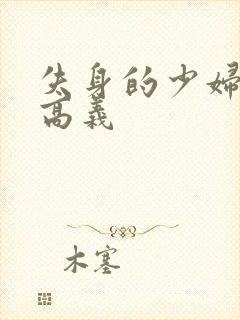 失身的少婦
高義
木塞